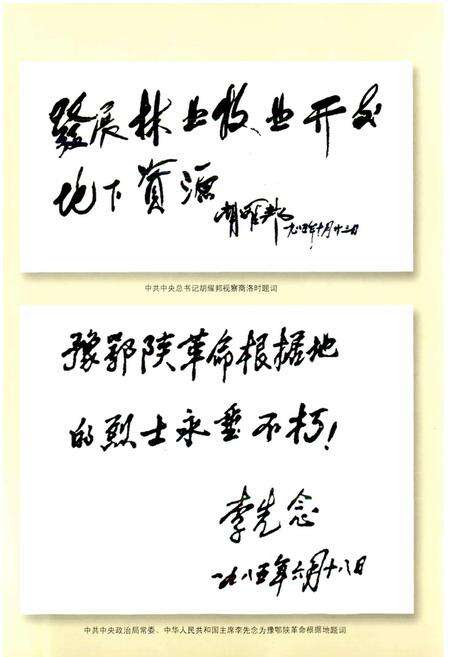 發展林业牧业开发
地下资源 胡耀邦 一九八五年十月十三日
中共中央总书记胡耀邦视察商洛时题词
豫鄂陕革命根据地
的烈士永垂不朽！
李先念
一九八五年六月十八日
中共中央政治局常委、中华人民共和国主席李先念为豫鄂陕革命根据地题词